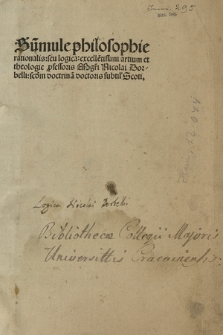 Sūmule philosophie
rationalis: seu logica: excellētissimi artium et
theologie ꝓfessoris Mḡri Nicolai Dor-
belli: secūdm doctrinā doctoris subtil' Scoti,
Logica Nicolai Dorbelli
Bibliothecæ Collegii Majoris
Universittis Cracoviensis.